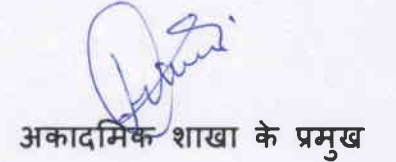 अकादमिक शाखा के प्रमुख